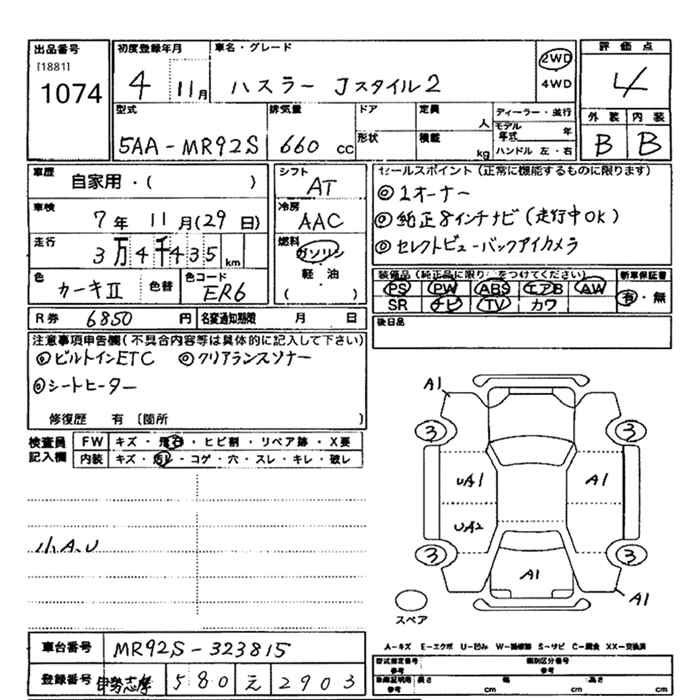 出品番号 初度登録年月 車名・グレード 2WD 評価点
[1881]
1074 4 11月 ハスラー Jスタイル2 4WD 4
型式 排気量 ドア 定員 人 ディーラー・並行 外装 内装
5AA-MR92S 660cc 形状 積載 kg モデル年式 年 B B
ハンドル 左・右
車歴 自家用・( ) シフト AT セールスポイント(正常に機能するものに限ります)
◎1オーナー
車検 7年 11月(29日) 冷房 AAC ◎純正8インチナビ(走行中OK)
走行 3万4千435km 燃料 ガソリン ◎セレクトビュー・バックアイカメラ
軽油
( )
色 カーキII 色替 色コード ER6 装備品(純正品に限り○をつけてください) 新車保証書
PS PW ABS エアB AW 有・無
SR ナビ TV カワ
R券 6850円 名変通知期限 月 日 後日品
注意事項申告欄(不具合内容等は具体的に記入して下さい)
◎ビルトインETC ◎クリアランスソナー
◎シートヒーター
修復歴 有 〔箇所 〕
検査員記入欄 FW キズ・飛石・ヒビ割・リペア跡・X要
内装 キズ・汚レ・コゲ・穴・スレ・キレ・破レ
小A.U
A1
3 3
UA1 A1
UA2
3 3
A1 A1
スペア
A-キズ E-エクボ U-凹み W-補修跡 S-サビ C-腐食 XX-交換済
車台番号 MR92S-323815
登録番号 伊勢志摩 580 え 2903
型式指定番号 類別区分番号
参考 参考
車庫証明用 長さ 幅 高さ
参考 cm cm cm